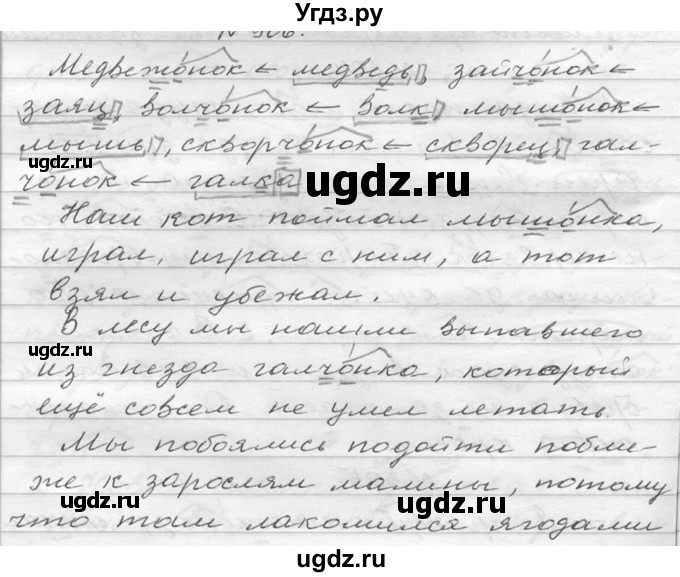 Угдз.ру
№ 506.
Медвежонок ← медведь, зайчонок ←
заяц, волчонок ← волк, мышонок ←
мышь, скворчонок ← скворец, гал-
чонок ← галка
Наш кот поймал мышонка,
играл, играл с ним, а тот
взял и убежал.
В лесу мы нашли выпавшего
из гнезда галчонка, который
ещё совсем не умел летать.
Мы побоялись подойти побли-
же к зарослям малины, потому
что там лакомился ягодами
ugdz.ru
ugdz.ru
ugdz.ru
ugdz.ru
ugdz.ru
ugdz.ru
ugdz.ru